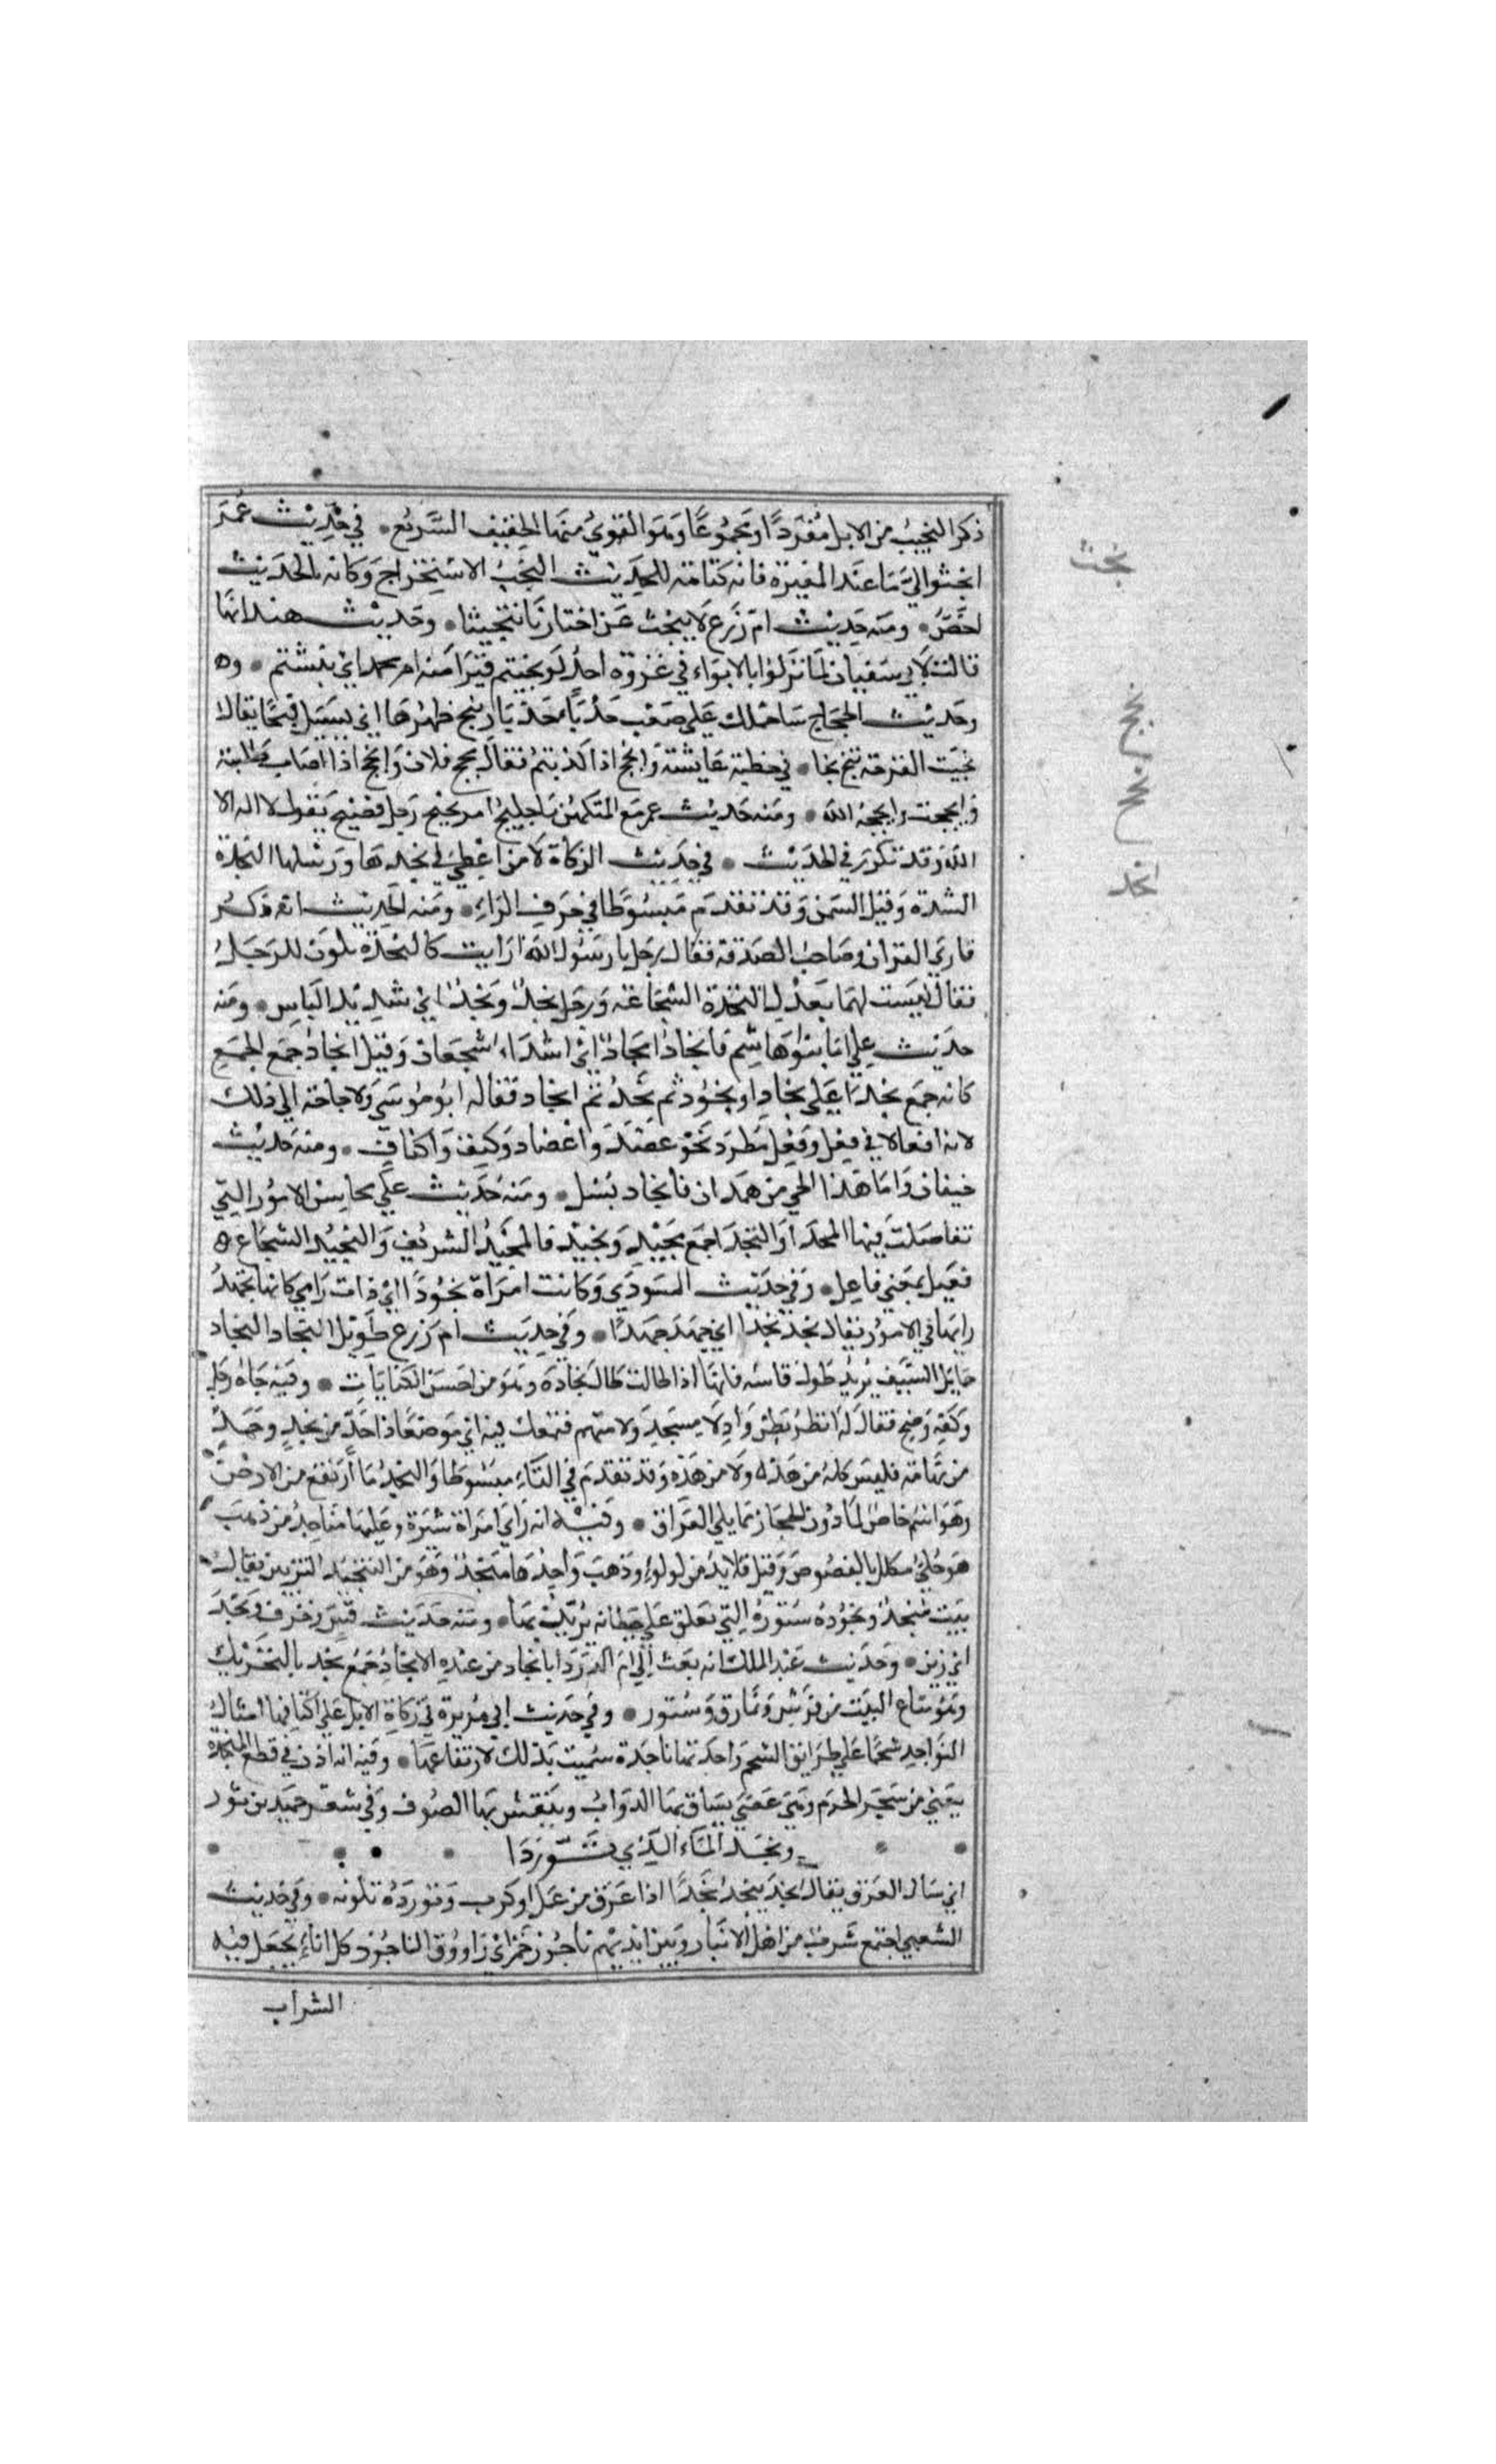 ذكر النجيب من الابل مفردا ومجموعا وهو القوي منها الخفيف السريع • في حديث عمر
انجثوا لي ما عند المغيرة فانه كتامة للحديث النجث الاستخراج وكانه بالحديث
اخص • ومنه حديث ام زرع لا ينجث عن اخبارنا تنجيثا • وحديث هند انها
قالت لابي سفيان لما نزلوا بالابواء في غزوة احد لو نجثتم قبر امنه ام محمد اي نبشتم • وه
وحديث الحجاج ساحملك على صعب حدباء حدبار ينج ظهرها اي يسيل قيحا يقال
نجت القرحة تنج نجا • في خطبة عايشة وانجح اذا اكديتم نقال نجح فلان وانجح اذا اصاب طلبته
وانجحت وانجحه الله • ومنه حديث عمر مع المتكهن يا جليح امر نجيح رجل فصيح يقول لا اله الا
الله وقد تكرر في الحديث • في حديث الزكاة الا من اعطى في نجدتها ورسلها النجدة
الشدة وقيل السمن وقد تقدم مبسوطا في حرف الراء • ومنه الحديث انه ذكر
قاري القران وصاحب الصدقة فقال رجل يا رسول الله ارايت كالنجدة تكون للرجل
فقال ليست لهما بعدل النجدة الشجاعة ورجل نجد ونجد اي شديد الباس • ومنه
حديث علي اما بنوا هاشم فانجاد امجاد اي اشداء شجعان وقيل انجاد جمع الجمع
كانه جمع نجدا على نجاد او نجود ثم نجد ثم انجاد فقاله ابو موسى ولا حاجة الى ذلك
لانه افعالا في فعل وفعل مطرد نحو عضد واعضاد وكتف واكتاف • ومنه حديث
خيفان واما هذا الحي من همدان فانجاد بسل • ومنه حديث علي محاسن الامور التي
تفاضلت فيها المجدا والنجدا جمع مجيد ونجيد فالمجيد الشريف والنجيد الشجاع ه
فعيل بمعنى فاعل • وفي حديث الشوري وكانت امراة نجودا اي ذات راي كانها تجهد
رايها في الامور يقال نجد نجدا اي جهد جهدا • وفي حديث ام زرع طويل النجاد النجاد
حمايل السيف يريد طول قامته فانها اذا طالت طال نجاده وهو من احسن الكنايات • وفيه جاه رجل
وبكفه وضح فقال له انظر بطن واد لا منجد ولا متهم فتمعك فيه اي موضعا ذا حد من نجد وحد
من تهامة فليس كله من هذه ولا من هذه وقد تقدم في التاء مبسوطا والنجد ما ارتفع من الارض
وهو اسم خاص لما دون الحجاز مما يلي العراق • وفيه انه راى امراة شيرة وعليها مناجد من ذهب
هو حلي مكلل بالفصوص وقيل قلايد من لولو وذهب واحدها منجد وهو من التنجيد التزيين يقال
بيت منجد ونجوده ستوره التي تعلق على حيطانه يزين بها • ومنه حديث قس زخرف ونجد
اي زين • وحديث عبد الملك انه بعث الى ام الدردا بانجاد من عنده الانجاد جمع نجد بالتحريك
وهو متاع البيت من فرش ونمارق وستور • وفي حديث ابي هريرة في زكاة الابل على اكتافها امثال
النواجد شحما على طرايق الشحم واحدتها ناجدة سميت بذلك لارتفاعها • وفيه انه اذن في قطع المنجدة
يعني من شجر الحرم وهي عصى يساق بها الدواب وينفش بها الصوف وفي شعر حميد بن ثور
• • ونجد الماء الذي توردا • • • •
اي سال العرق يقال نجد ينجد نجدا اذا عرق من عمل او كرب وتورده تلونه • وفي حديث
الشعبي اجتمع شرب من اهل الانبار وبين ايديهم ناجود خمر اي راووق الناجود كل اناء يجعل فيه
الشراب
نجث
نجج
نجح
نجد